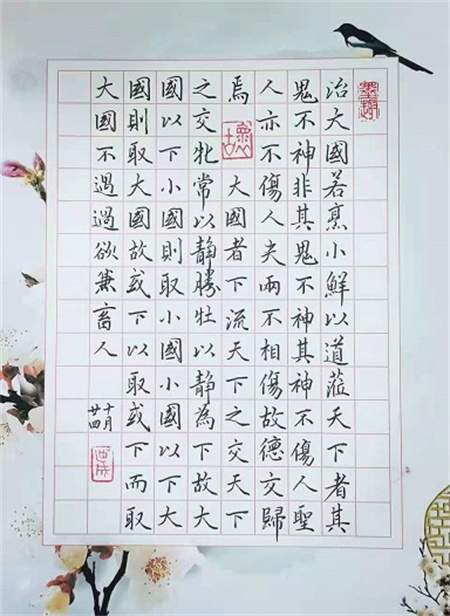 治大國若烹小鮮以道蒞天下者其
鬼不神非其鬼不神其神不傷人聖
人亦不傷人夫兩不相傷故德交歸
焉 大國者下流天下之交天下
之交牝常以静勝牡以静為下故大
國以下小國則取小國小國以下大
國則取大國故或下以取或下而取
大國不過過欲兼畜人
十月
廿四